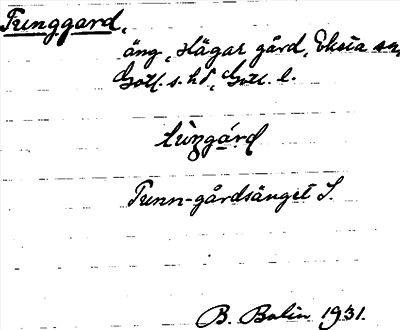 Tunggard,
äng, Hägar gård, Eksta sn,
Gotl. s. hd, Gotl. l.
tùngárd
Tunn-gårdsänget L.
B. Bolin 1931.